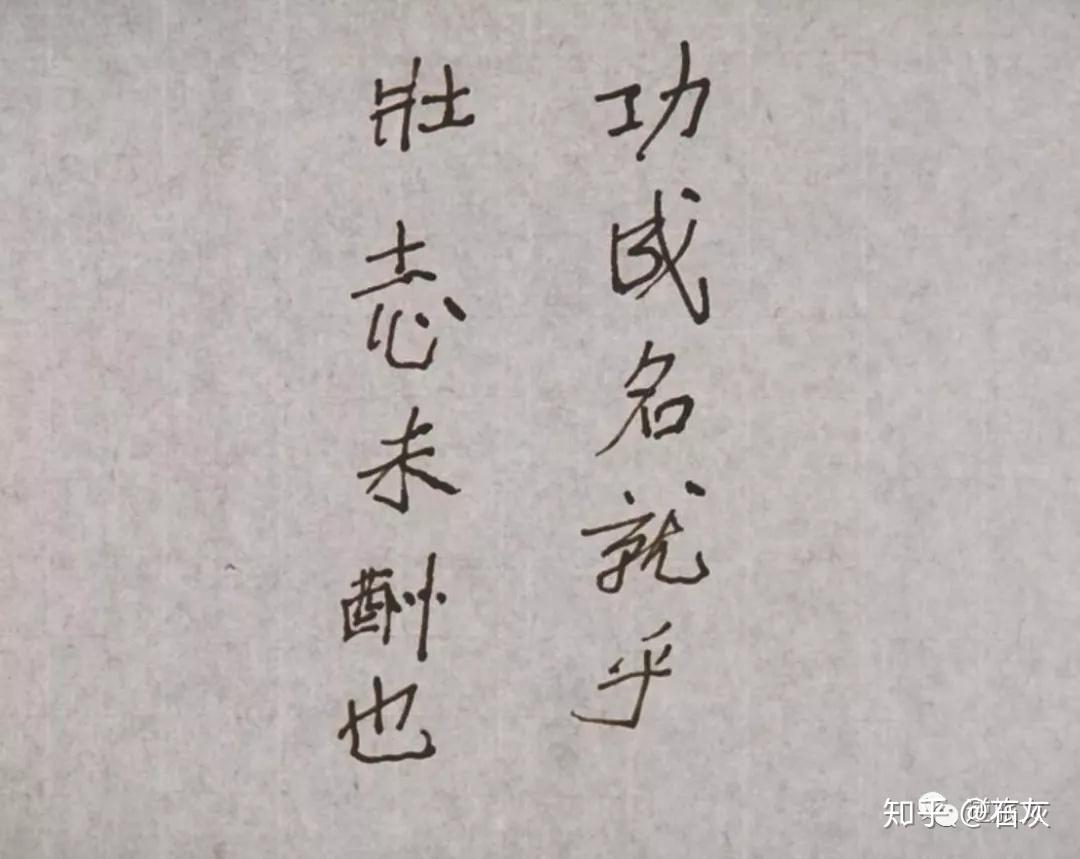 功成名就乎
壯志未酬也
知乎 @石灰